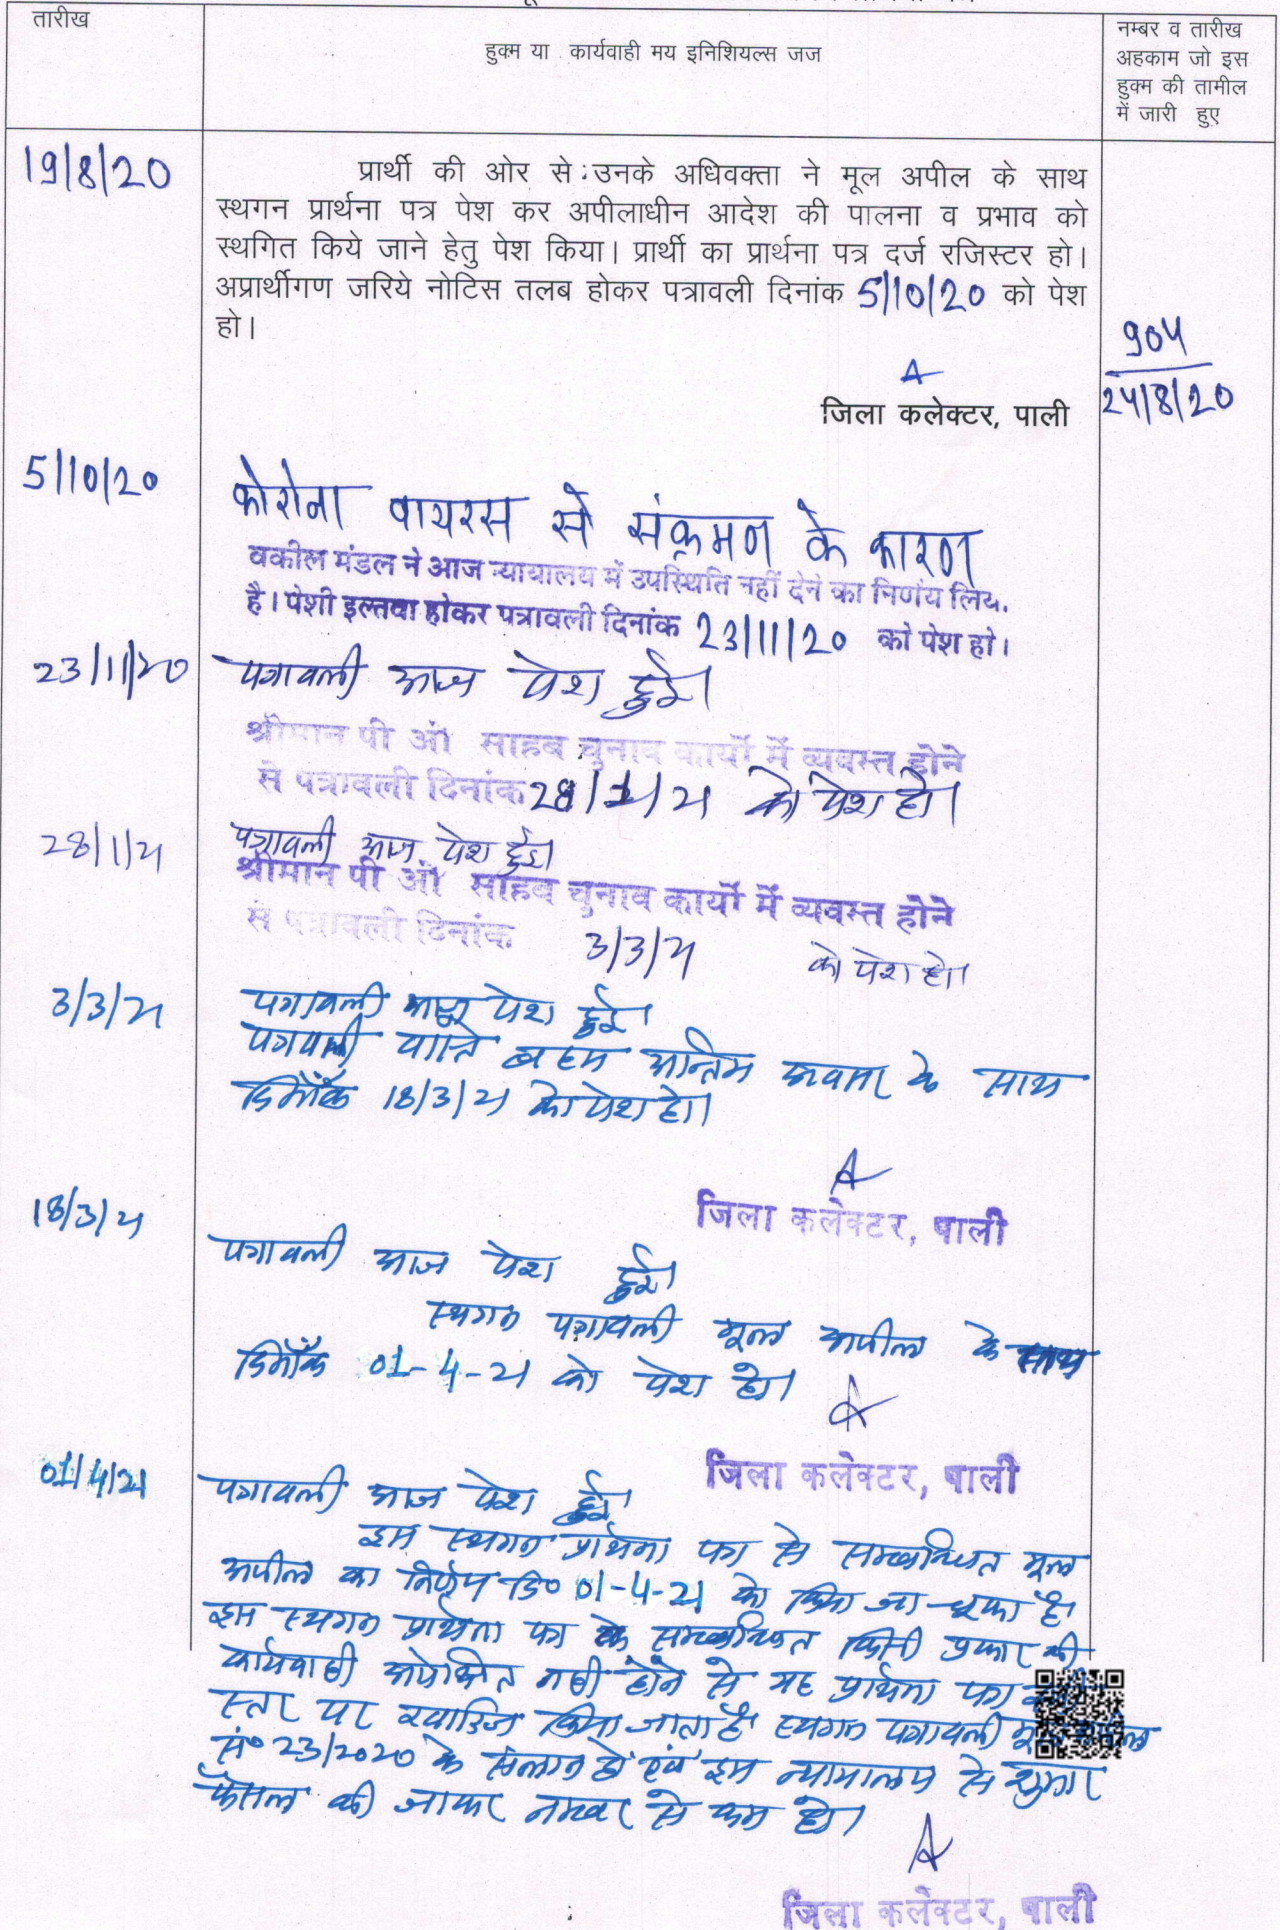 तारीख
हुक्म या कार्यवाही मय इनिशियल्स जज
नम्बर व तारीख
अहकाम जो इस
हुक्म की तामील
में जारी हुए
19/8/20
प्रार्थी की ओर से उनके अधिवक्ता ने मूल अपील के साथ
स्थगन प्रार्थना पत्र पेश कर अपीलाधीन आदेश की पालना व प्रभाव को
स्थगित किये जाने हेतु पेश किया। प्रार्थी का प्रार्थना पत्र दर्ज रजिस्टर हो।
अप्रार्थीगण जरिये नोटिस तलब होकर पत्रावली दिनांक 5/10/20 को पेश
हो।
904
24/8/20
जिला कलेक्टर, पाली
5/10/20
कोरोना वायरस से संक्रमण के कारण
वकील मंडल ने आज न्यायालय में उपस्थिति नहीं देने का निर्णय लिय.
है। पेशी इल्तवा होकर पत्रावली दिनांक 23/11/20 को पेश हो।
23/11/20
पत्रावली आज पेश हुई।
श्रीमान पी ओ साहब चुनाव कार्यो में व्यवस्त होने
से पत्रावली दिनांक 28/1/21 को पेश हो।
28/1/21
पत्रावली आज पेश हुई।
श्रीमान पी ओ साहब चुनाव कार्यो में व्यवस्त होने
से पत्रावली दिनांक 3/3/21 को पेश हो।
3/3/21
पत्रावली आज पेश हुई।
पत्रावली वास्ते बहस अन्तिम अवसर के साथ
दिनाँक 18/3/21 को पेश हो।
जिला कलेक्टर, पाली
18/3/21
पत्रावली आज पेश हुई।
स्थगन पत्रावली मूल अपील के साथ
दिनाँक 01-4-21 को पेश हो।
जिला कलेक्टर, पाली
01/4/21
पत्रावली आज पेश हुई।
इस स्थगन प्रार्थना पत्र से सम्बन्धित मूल
अपील का निर्णय दि० 01-4-21 को किया जा चूका है
इस स्थगन प्रार्थना पत्र के सम्बन्धित किसी प्रकार की
कार्यवाही अपेक्षित नही होने से यह प्रार्थना पत्र
स्तर पर खारिज किया जाता है स्थगन पत्रावली मूल
सं० 23/2020 के संलग्न हो एवं इस न्यायालय से शुमार
फैसल की जाकर नम्बर से कम हो।
जिला कलेक्टर, पाली